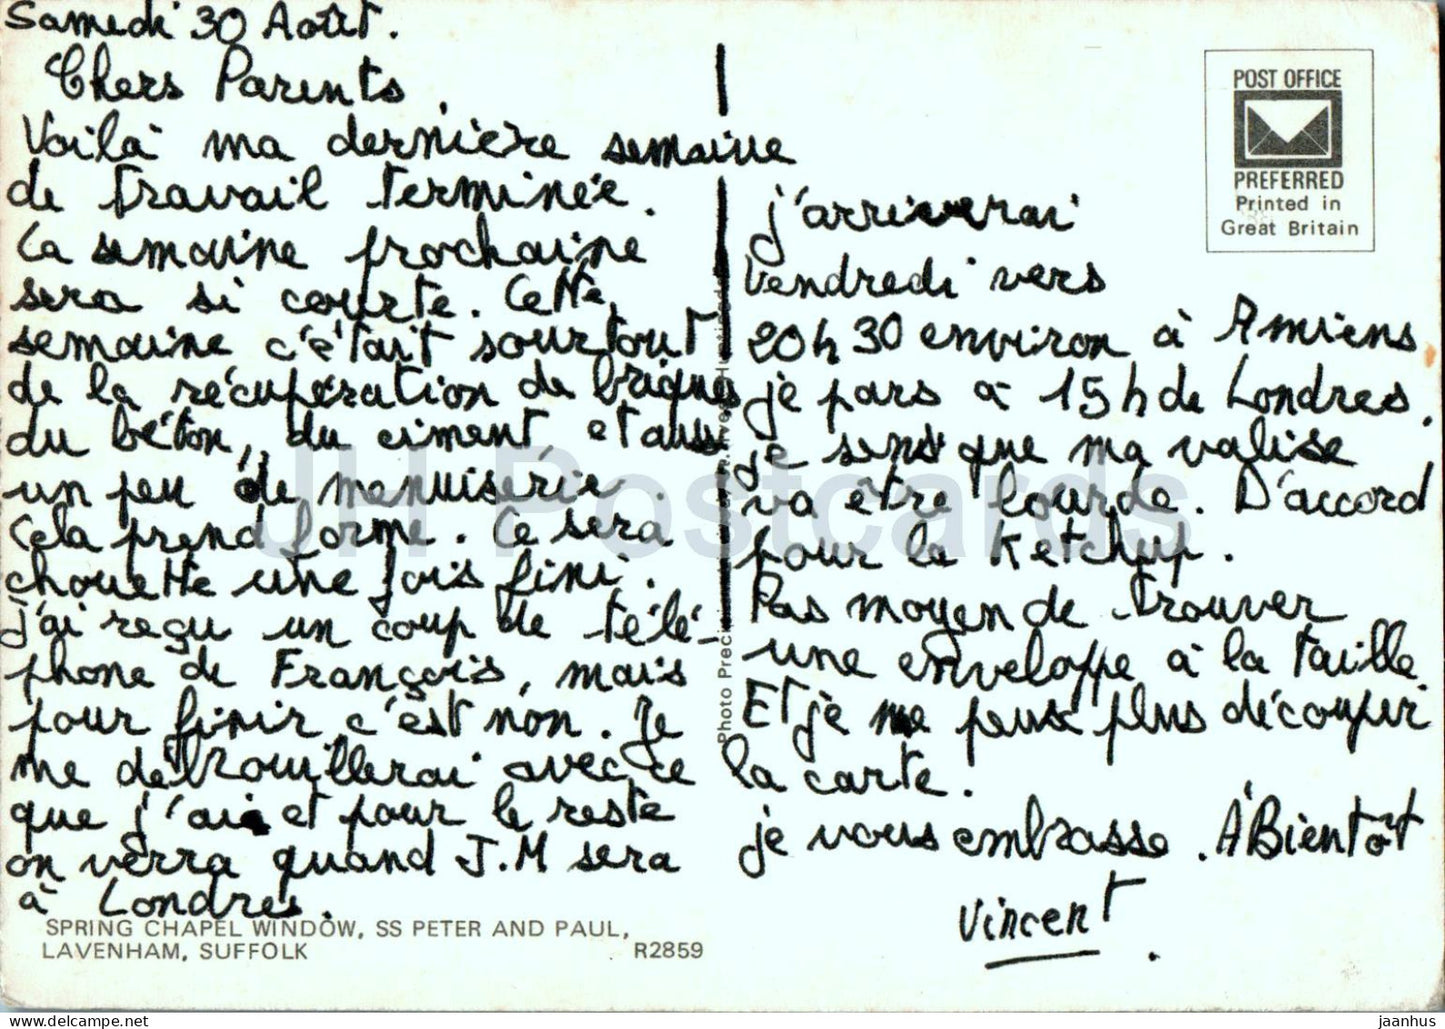 Samedi 30 Août.
Chers Parents,
Voilà ma dernière semaine
de travail terminée.
La semaine prochaine
sera si courte. Cette
semaine c'était sourtout
de la récupération de briques
du béton, du ciment et aussi
un peu de menuisérie.
Cela prend forme. Ce sera
chouette une fois fini.
J'ai reçu un coup de télé-
phone de François, mais
pour finir c'est non. Je
me débrouillerai avec ce
que j'ai et pour le reste
on verra quand J.M sera
à Londres.
SPRING CHAPEL WINDOW, SS PETER AND PAUL,
LAVENHAM, SUFFOLK R2859
Photo Preci
POST OFFICE
PREFERRED
Printed in
Great Britain
j'arriverai
Vendredi vers
20h30 environ à Amiens
je pars à 15h de Londres.
je sens que ma valise
va être lourde. D'accord
pour le Ketchup.
Pas moyen de trouver
une enveloppe à la taille.
Et je ne peux plus découpir
la carte.
je vous embrasse. À Bientôt
Vincent.
JH Postcards
www.delcampe.net
jaanhus